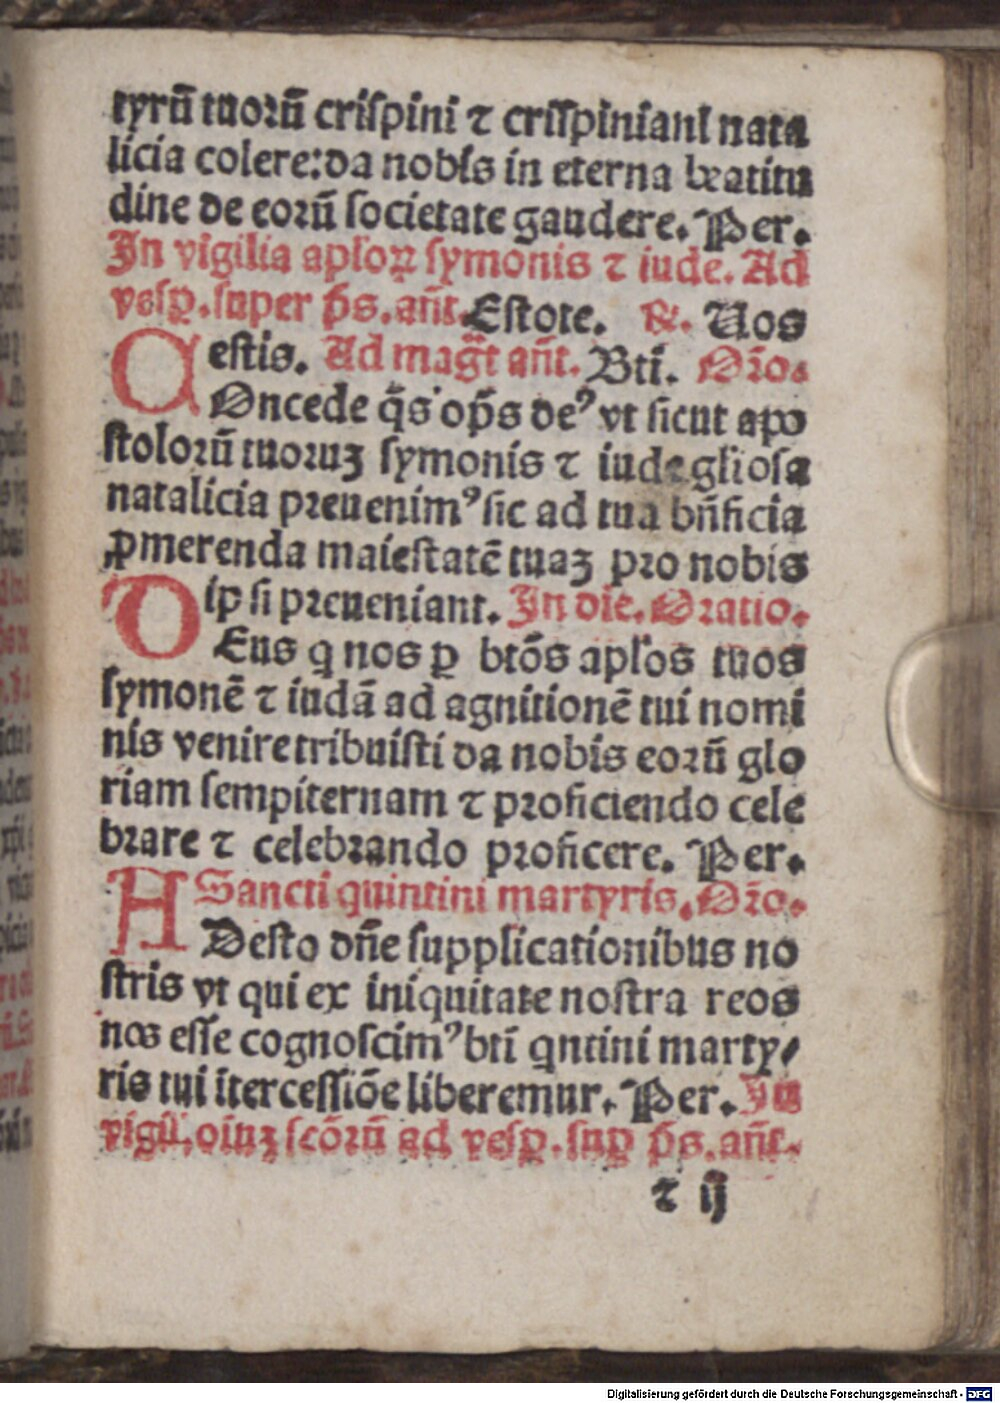 tyrũ tuoꝛũ criſpini ⁊ criſſpiniani nata
licia colere:da nobis in eterna beatitu
dine de eoꝛũ ſocietate gaudere. Per.
In vigilia apſoꝝ ſymonis ⁊ iude. Ad
veſꝑ. ſuper p̄s. an̄t. Eſtote. ℟. Uos
eſtis. Ad magt̄ an̄t. Bti̅. Oꝛ̄o.
COncede q̄s op̄s deꝰ vt ſicut apo
ſtoloꝛũ tuoꝛuꝫ ſymonis ⁊ iude glioſa
natalicia pꝛeuenimꝰ ſic ad tua bn̄ficia
ꝓmerenda maieſtatē tuaꝫ pꝛo nobis
ip̄ ſi pꝛeueniant. In die. Oꝛatio.
DEus q nos ꝑ btōs apl̄os tuos
ſymonē ⁊ iudā ad agnitionē tui nomi
nis venire tribuiſti da nobis eoꝛũ glo
riam ſempiternam ⁊ pꝛoficiendo cele
bꝛare ⁊ celebꝛando pꝛoficere. Per.
Sancti quintini martyris. Oꝛ̄o.
ADeſto dn̄e ſupplicationibus no
ſtris vt qui ex iniquitate noſtra reos
nos eſſe cognoſcimꝰ bti̅ qntini marty⸗
ris tui i̅terceſſiōe liberemur. Per. In
vigil̄. oi̅uꝫ ſcōꝛũ ad veſꝑ. ſuꝑ p̄s. an̄t.
t ij
Digitalisierung gefördert durch die Deutsche Forschungsgemeinschaft - DFG